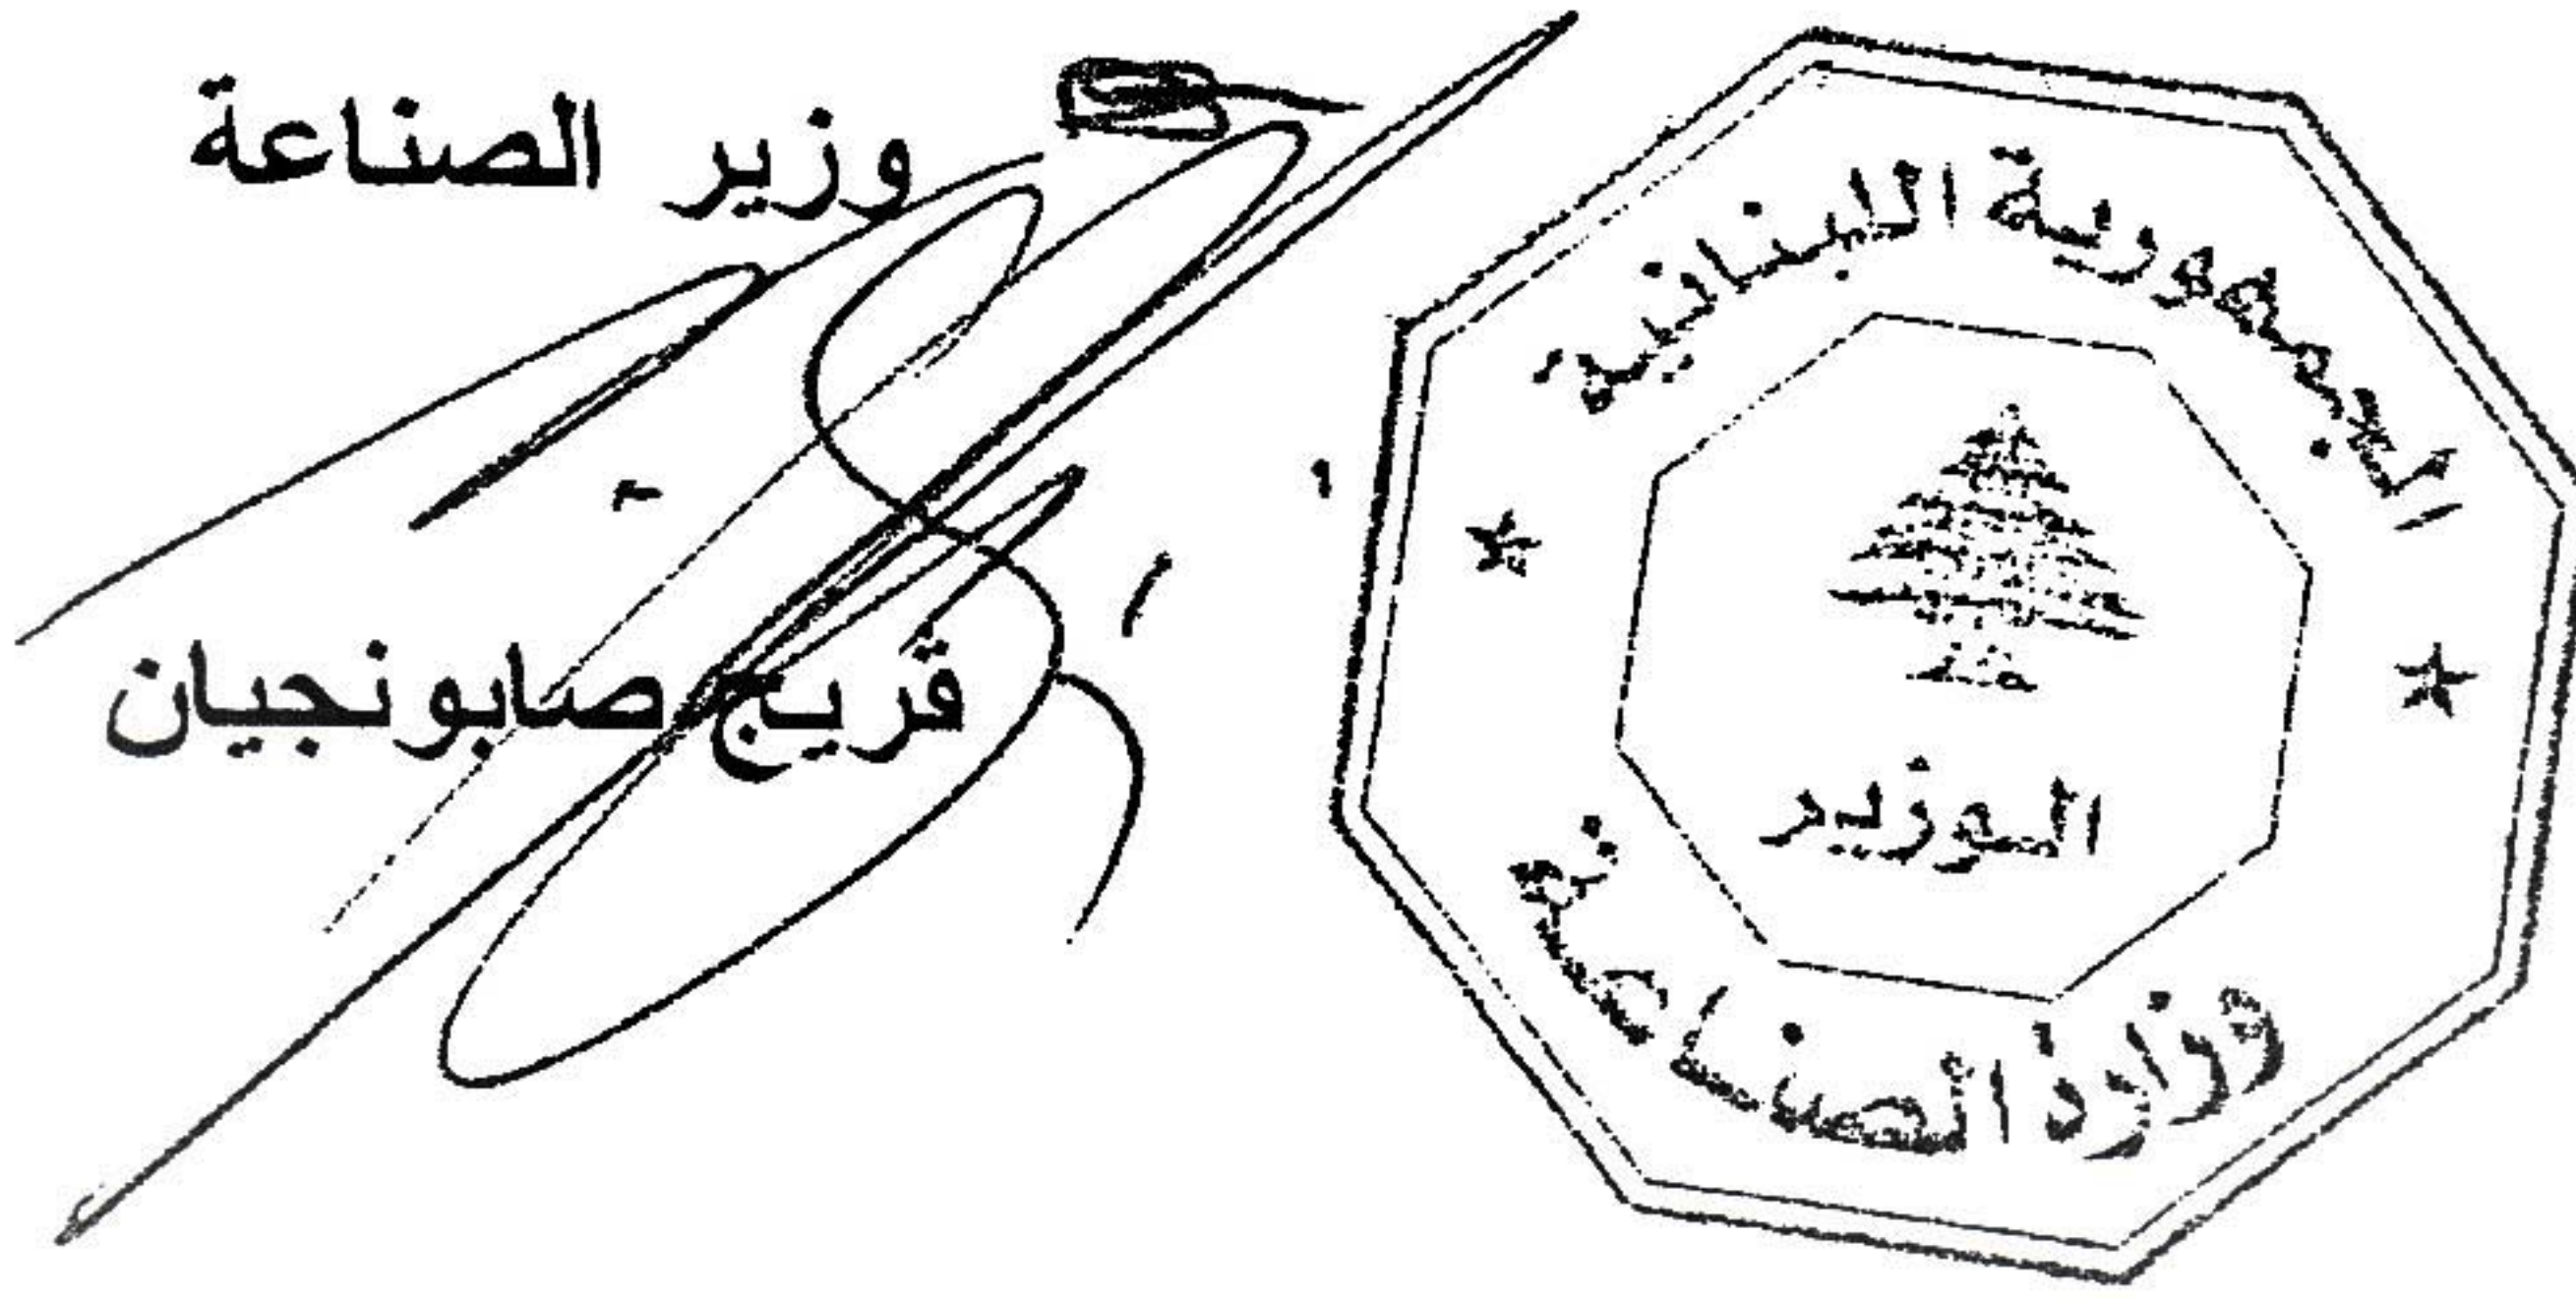 وزير الصناعة
ڤريج صابونجيان
الجمهورية اللبنانية
الوزير
وزارة الصناعة